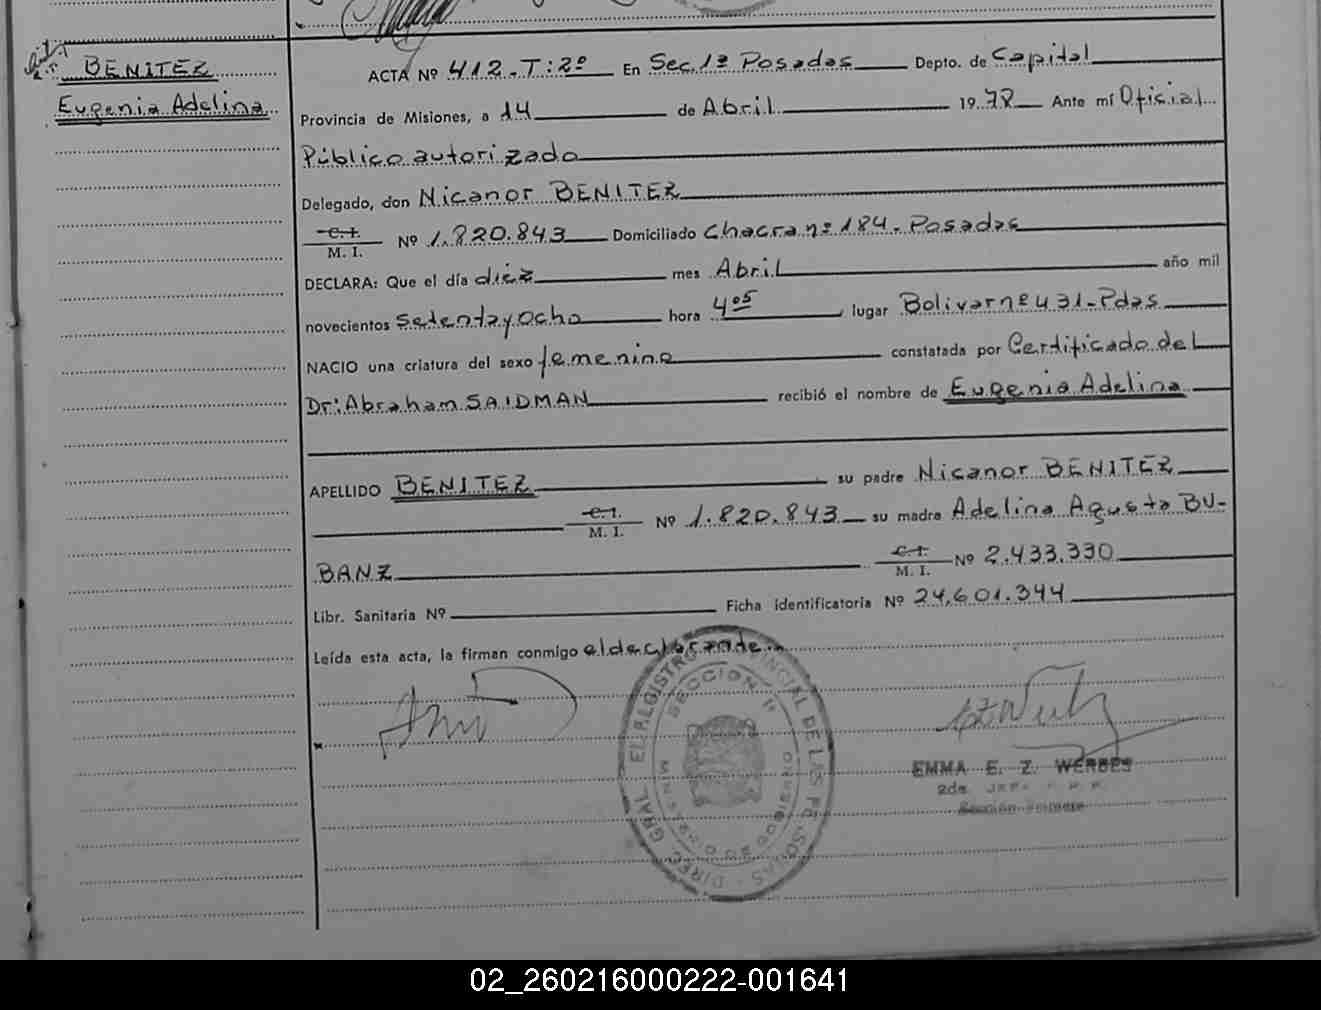 BENITEZ
Eugenia Adelina
ACTA Nº 412-T:2º En Sec.1ª Posadas Depto. de Capital
Provincia de Misiones, a 14 de Abril 1978 Ante mí Oficial
Público autorizado
Delegado, don Nicanor BENITEZ
C.I.
M. I. Nº 1.820.843 Domiciliado Chacra nº 184-Posadas
DECLARA: Que el día diez mes Abril año mil
novecientos setentayocho hora 4º5 lugar Bolivar nº431-Pdas
NACIO una criatura del sexo femenino constatada por Certificado del
Dr: Abraham SAIDMAN recibió el nombre de Eugenia Adelina
APELLIDO BENITEZ su padre Nicanor BENITEZ
C.I.
M. I. Nº 1.820.843 su madre Adelina Agusta BU-
BANZ C.I.
M. I. Nº 2.433.330
Libr. Sanitaria Nº Ficha identificatoria Nº 24.601.344
Leída esta acta, la firman conmigo el declarande.
DIREC. GRAL. EL REGISTRO PROVINCIAL DE LAS PERSONAS
SECCION 1ª
MINISTERIO DE GOBIERNO
EMMA E. Z. WERBES
2da. JEFA
Sección Primera
02_260216000222-001641